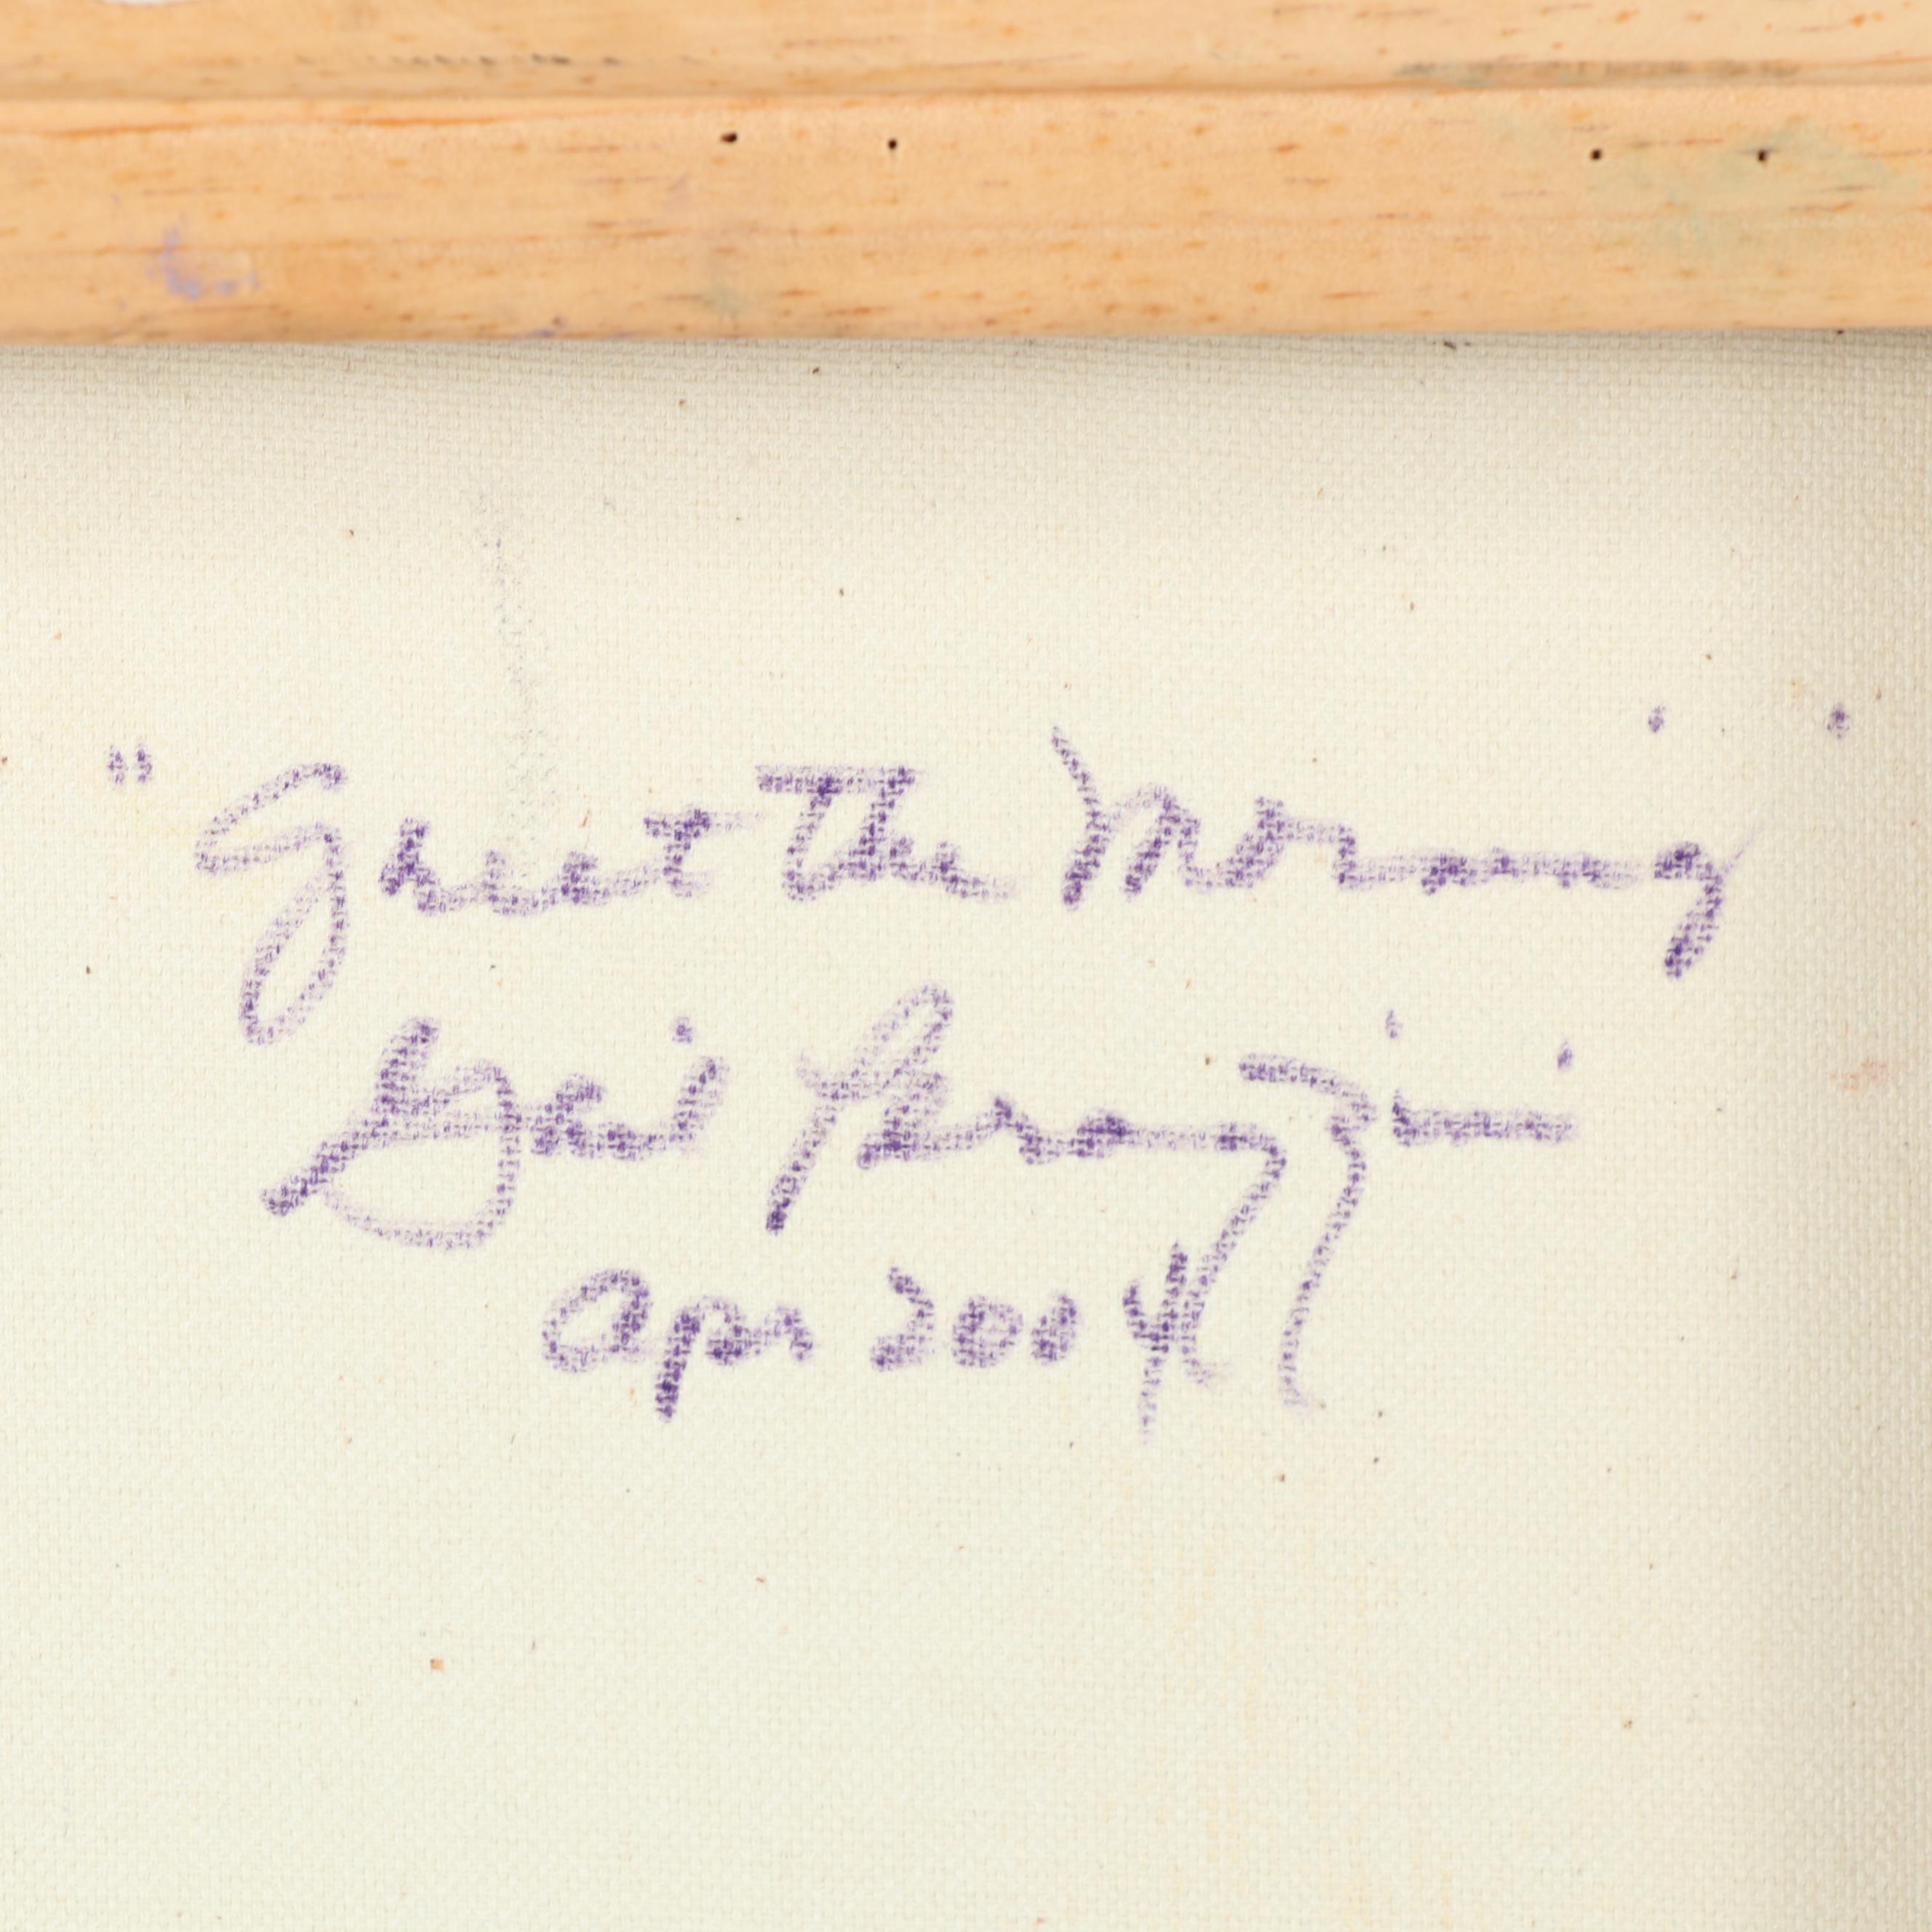 "Greet The Morning"
Gail Perazzini
Apr 2004